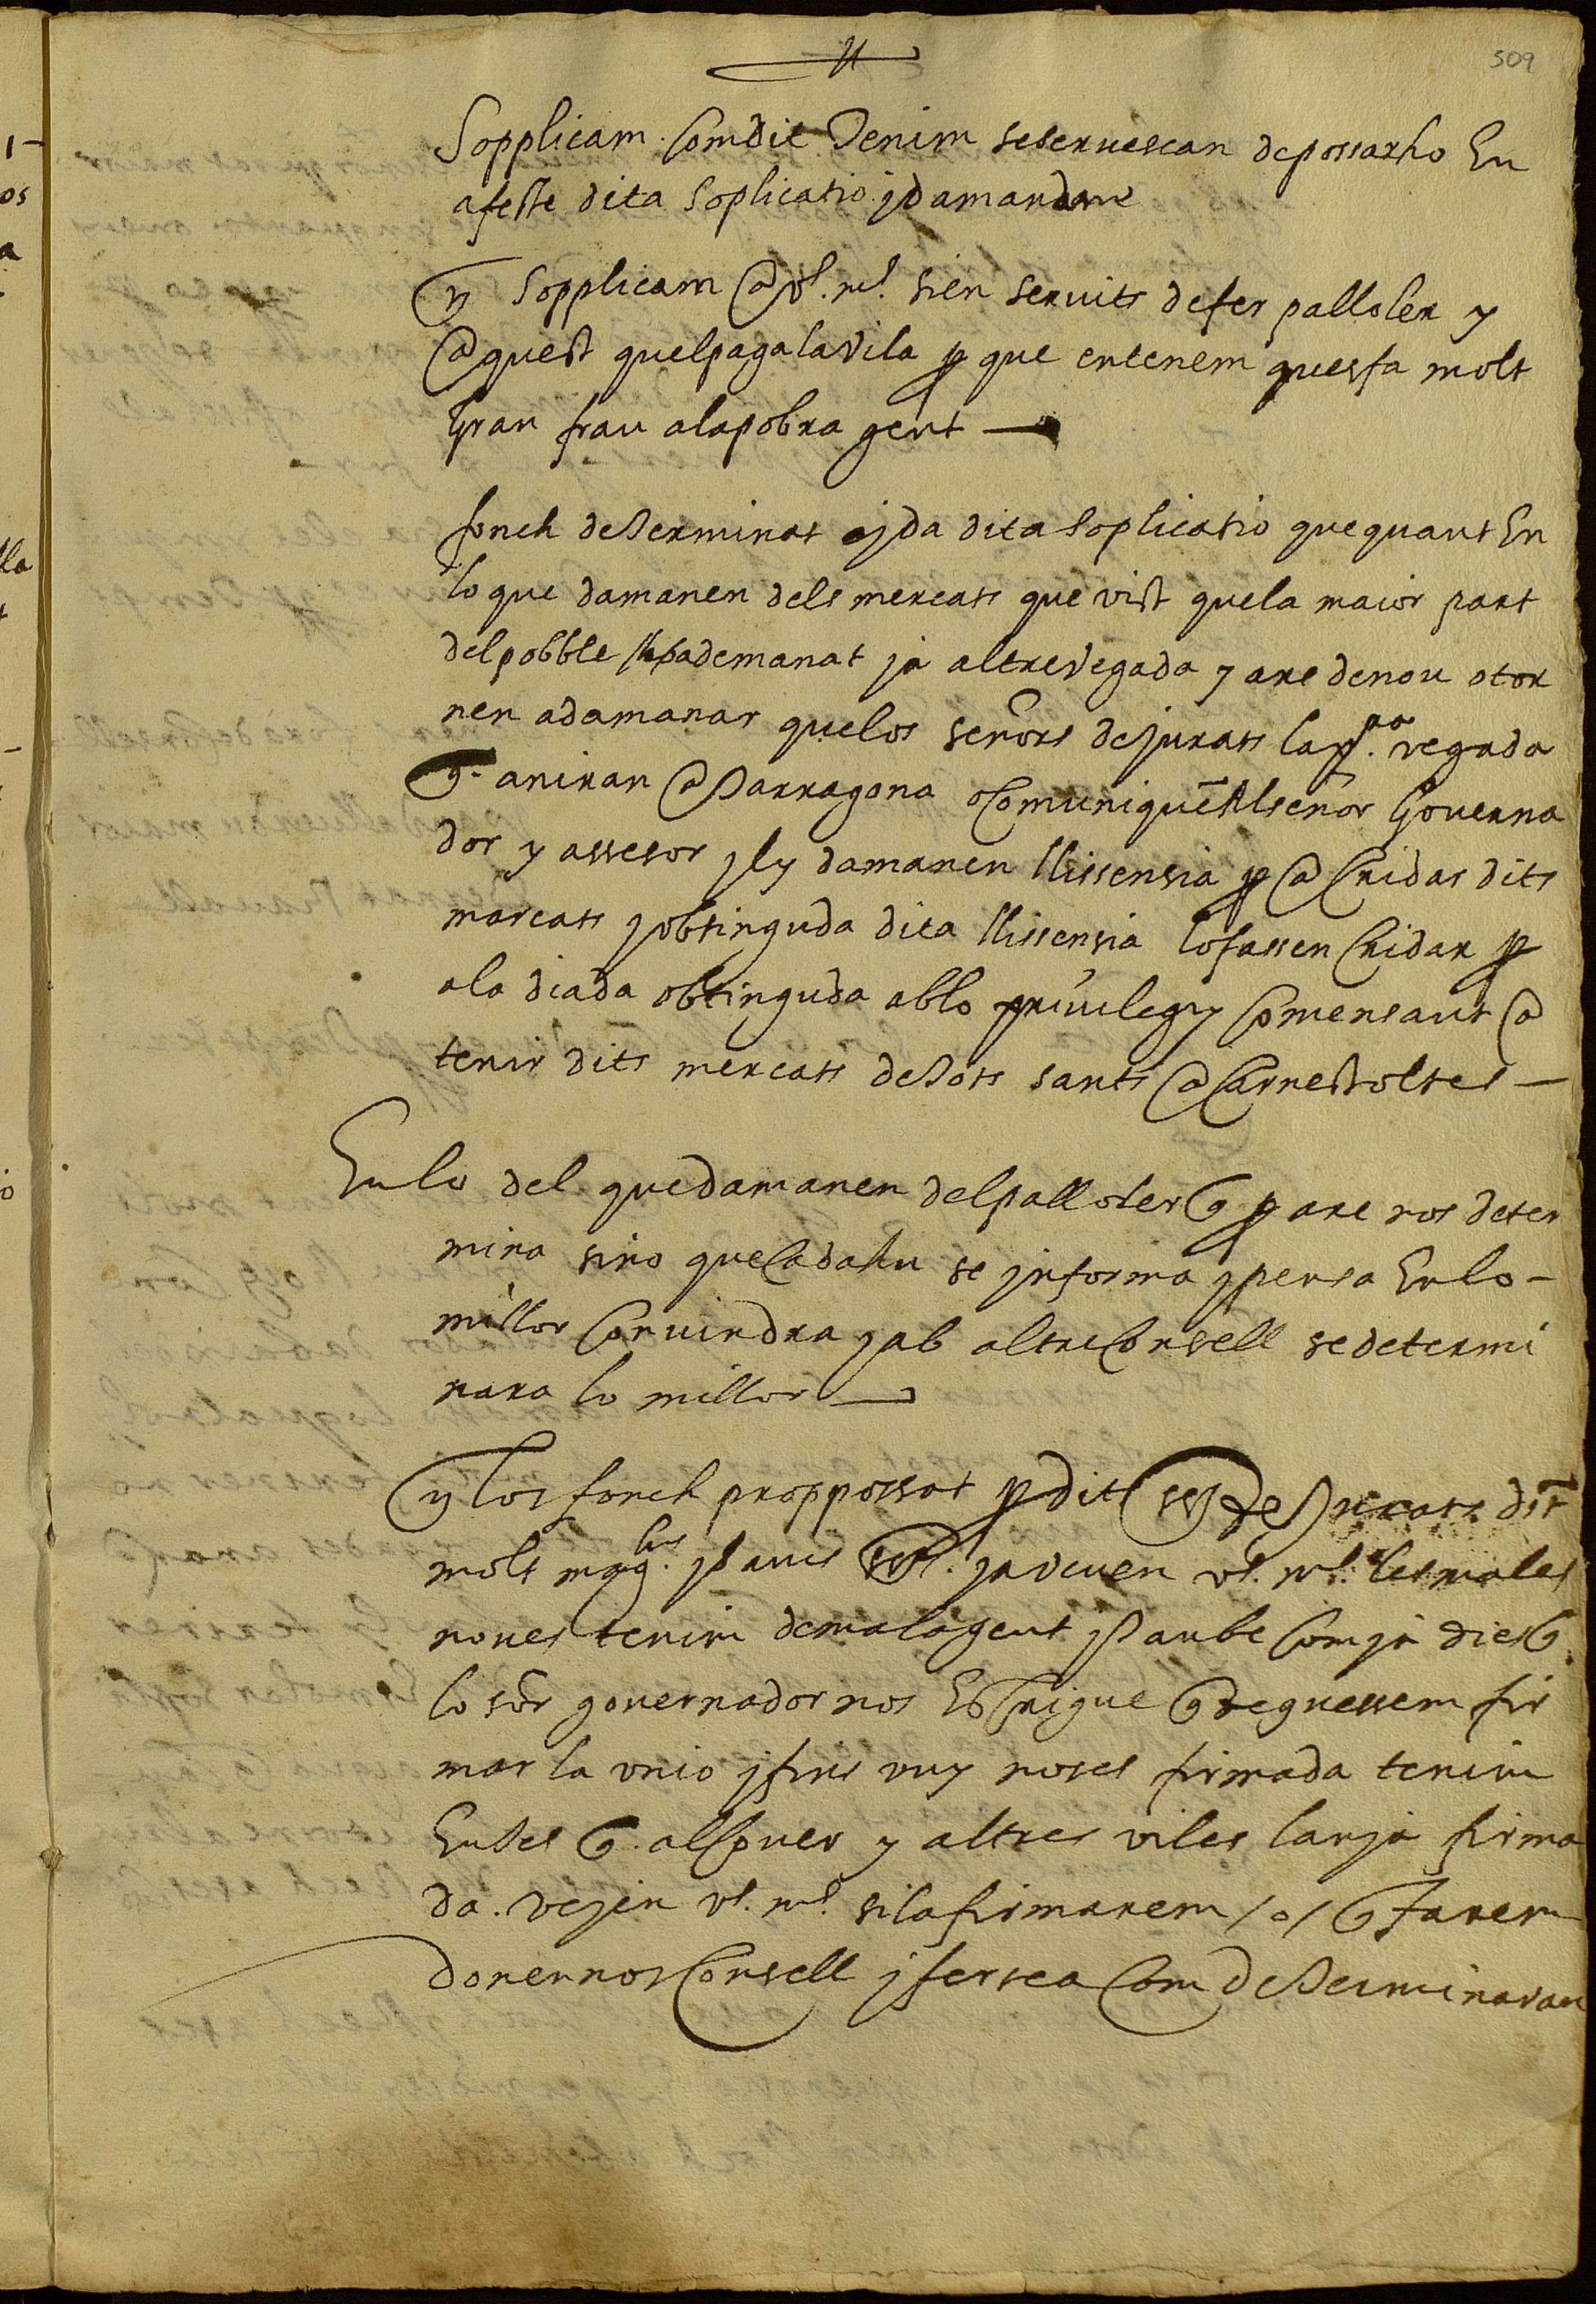 509
Sopplicam Com dit Tenim se servescan de possarho En
afecte dita Soplicatio y damanda
y sopplicam a vs. ms. sien servits de fer palloler y
aquest quel paga la vila per que entenem ques fa molt
Gran frau a la pobra gent
fonch determinat ojda dita soplicatio que quant En
lo que damanen dels mercats que vist que la maior part
del pobble ho ha demanat ja altre vegada y are de nou o tor
nen a damanar que los señors de jurats la pra. vegada
q. aniran a Tarragona o Comuniquen Al señor Governa
dor y assesor y ly damanen llissensia per a Cridar dits
marcats y obtinguda dita llissensia lo fassen Cridar per
a la diada obtinguda ab lo privilegy Comensant a
tenir dits mercats de Tots sants a Carnestoltes
En lo del que damanen del palloler q per are nos deter
mina sino que Cada hu se informa y pensa En lo
millor Convindra y ab altre Consell se determi
nara lo millor
y los fonch proppossat per dits srs de Jurats dit
molt magchs. y savis srs. ja veuen vs. ms. les males
noves tenim de mala gent y Tanbe Com ja dies q
lo sor governador nos Escrigue q deguessem fir
mar la unio y fins vuy nos es firmada tenim
Entes q. alCover y altres viles lan ja firma
da. vejen vs. ms. si la firmarem /o/ q farem
donen nos Consell y fer sea Com deTerminaran